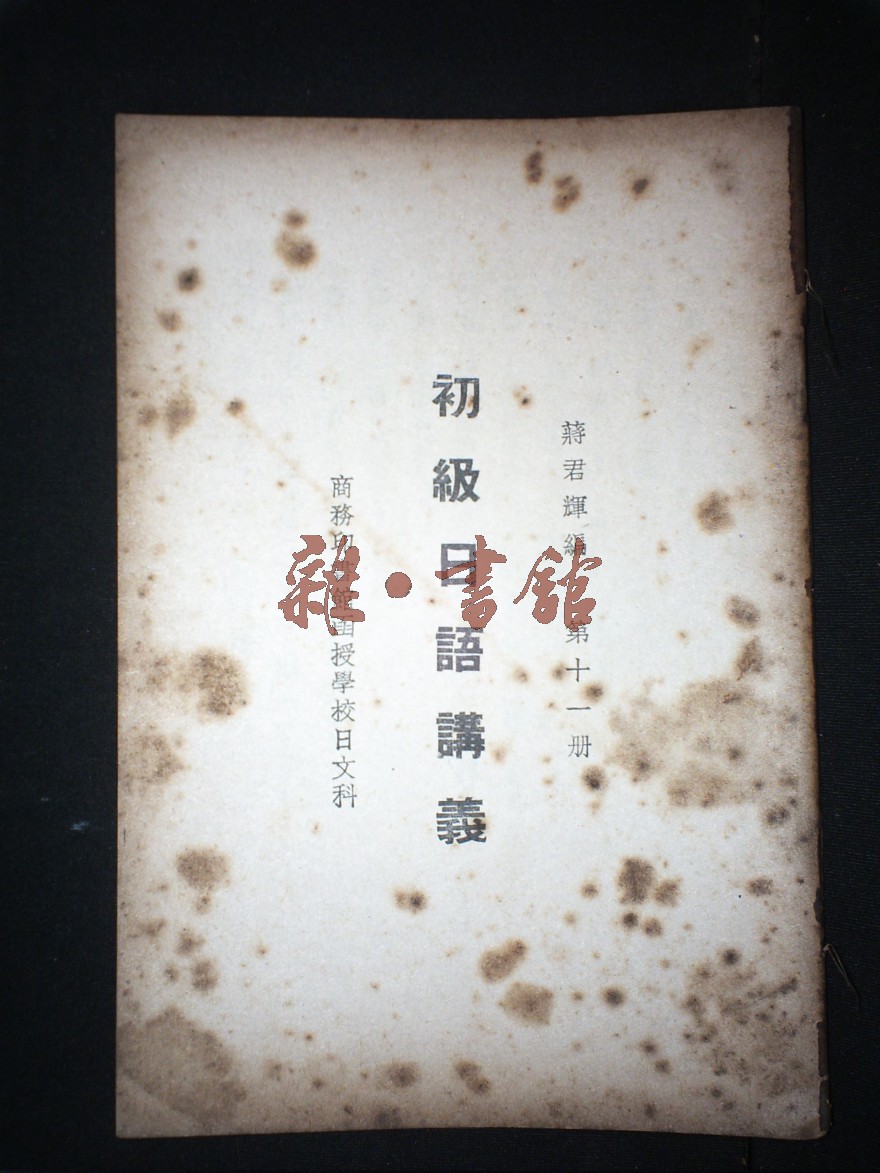 蔣君輝編 第十一册
初級日語講義
商務印書館函授學校日文科
雜·書館